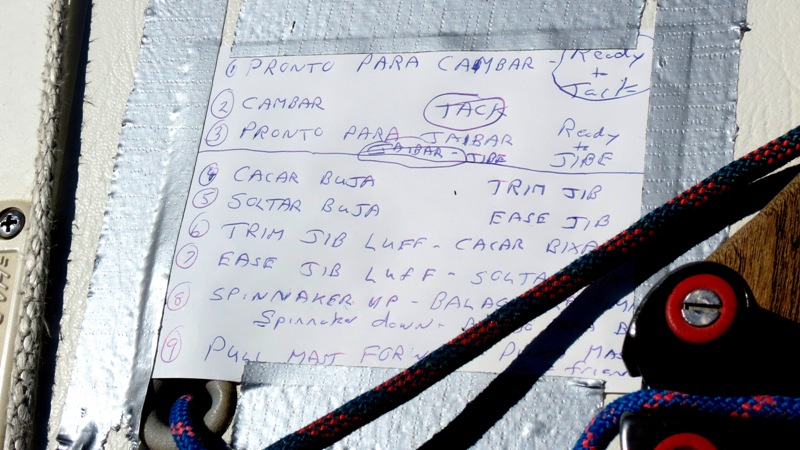 1 PRONTO PARA CAMBAR - Ready to Tack
2 CAMBAR TACK
3 PRONTO PARA JAIBAR Ready to JIBE
JAIBAR - JIBE
4 CACAR BUJA TRIM JIB
5 SOLTAR BUJA EASE JIB
6 TRIM JIB LUFF - CACAR BIXA
7 EASE JIB LUFF - SOLTA
8 SPINNAKER UP - BALAO
Spinnaker down -
9 PULL MAST FOR